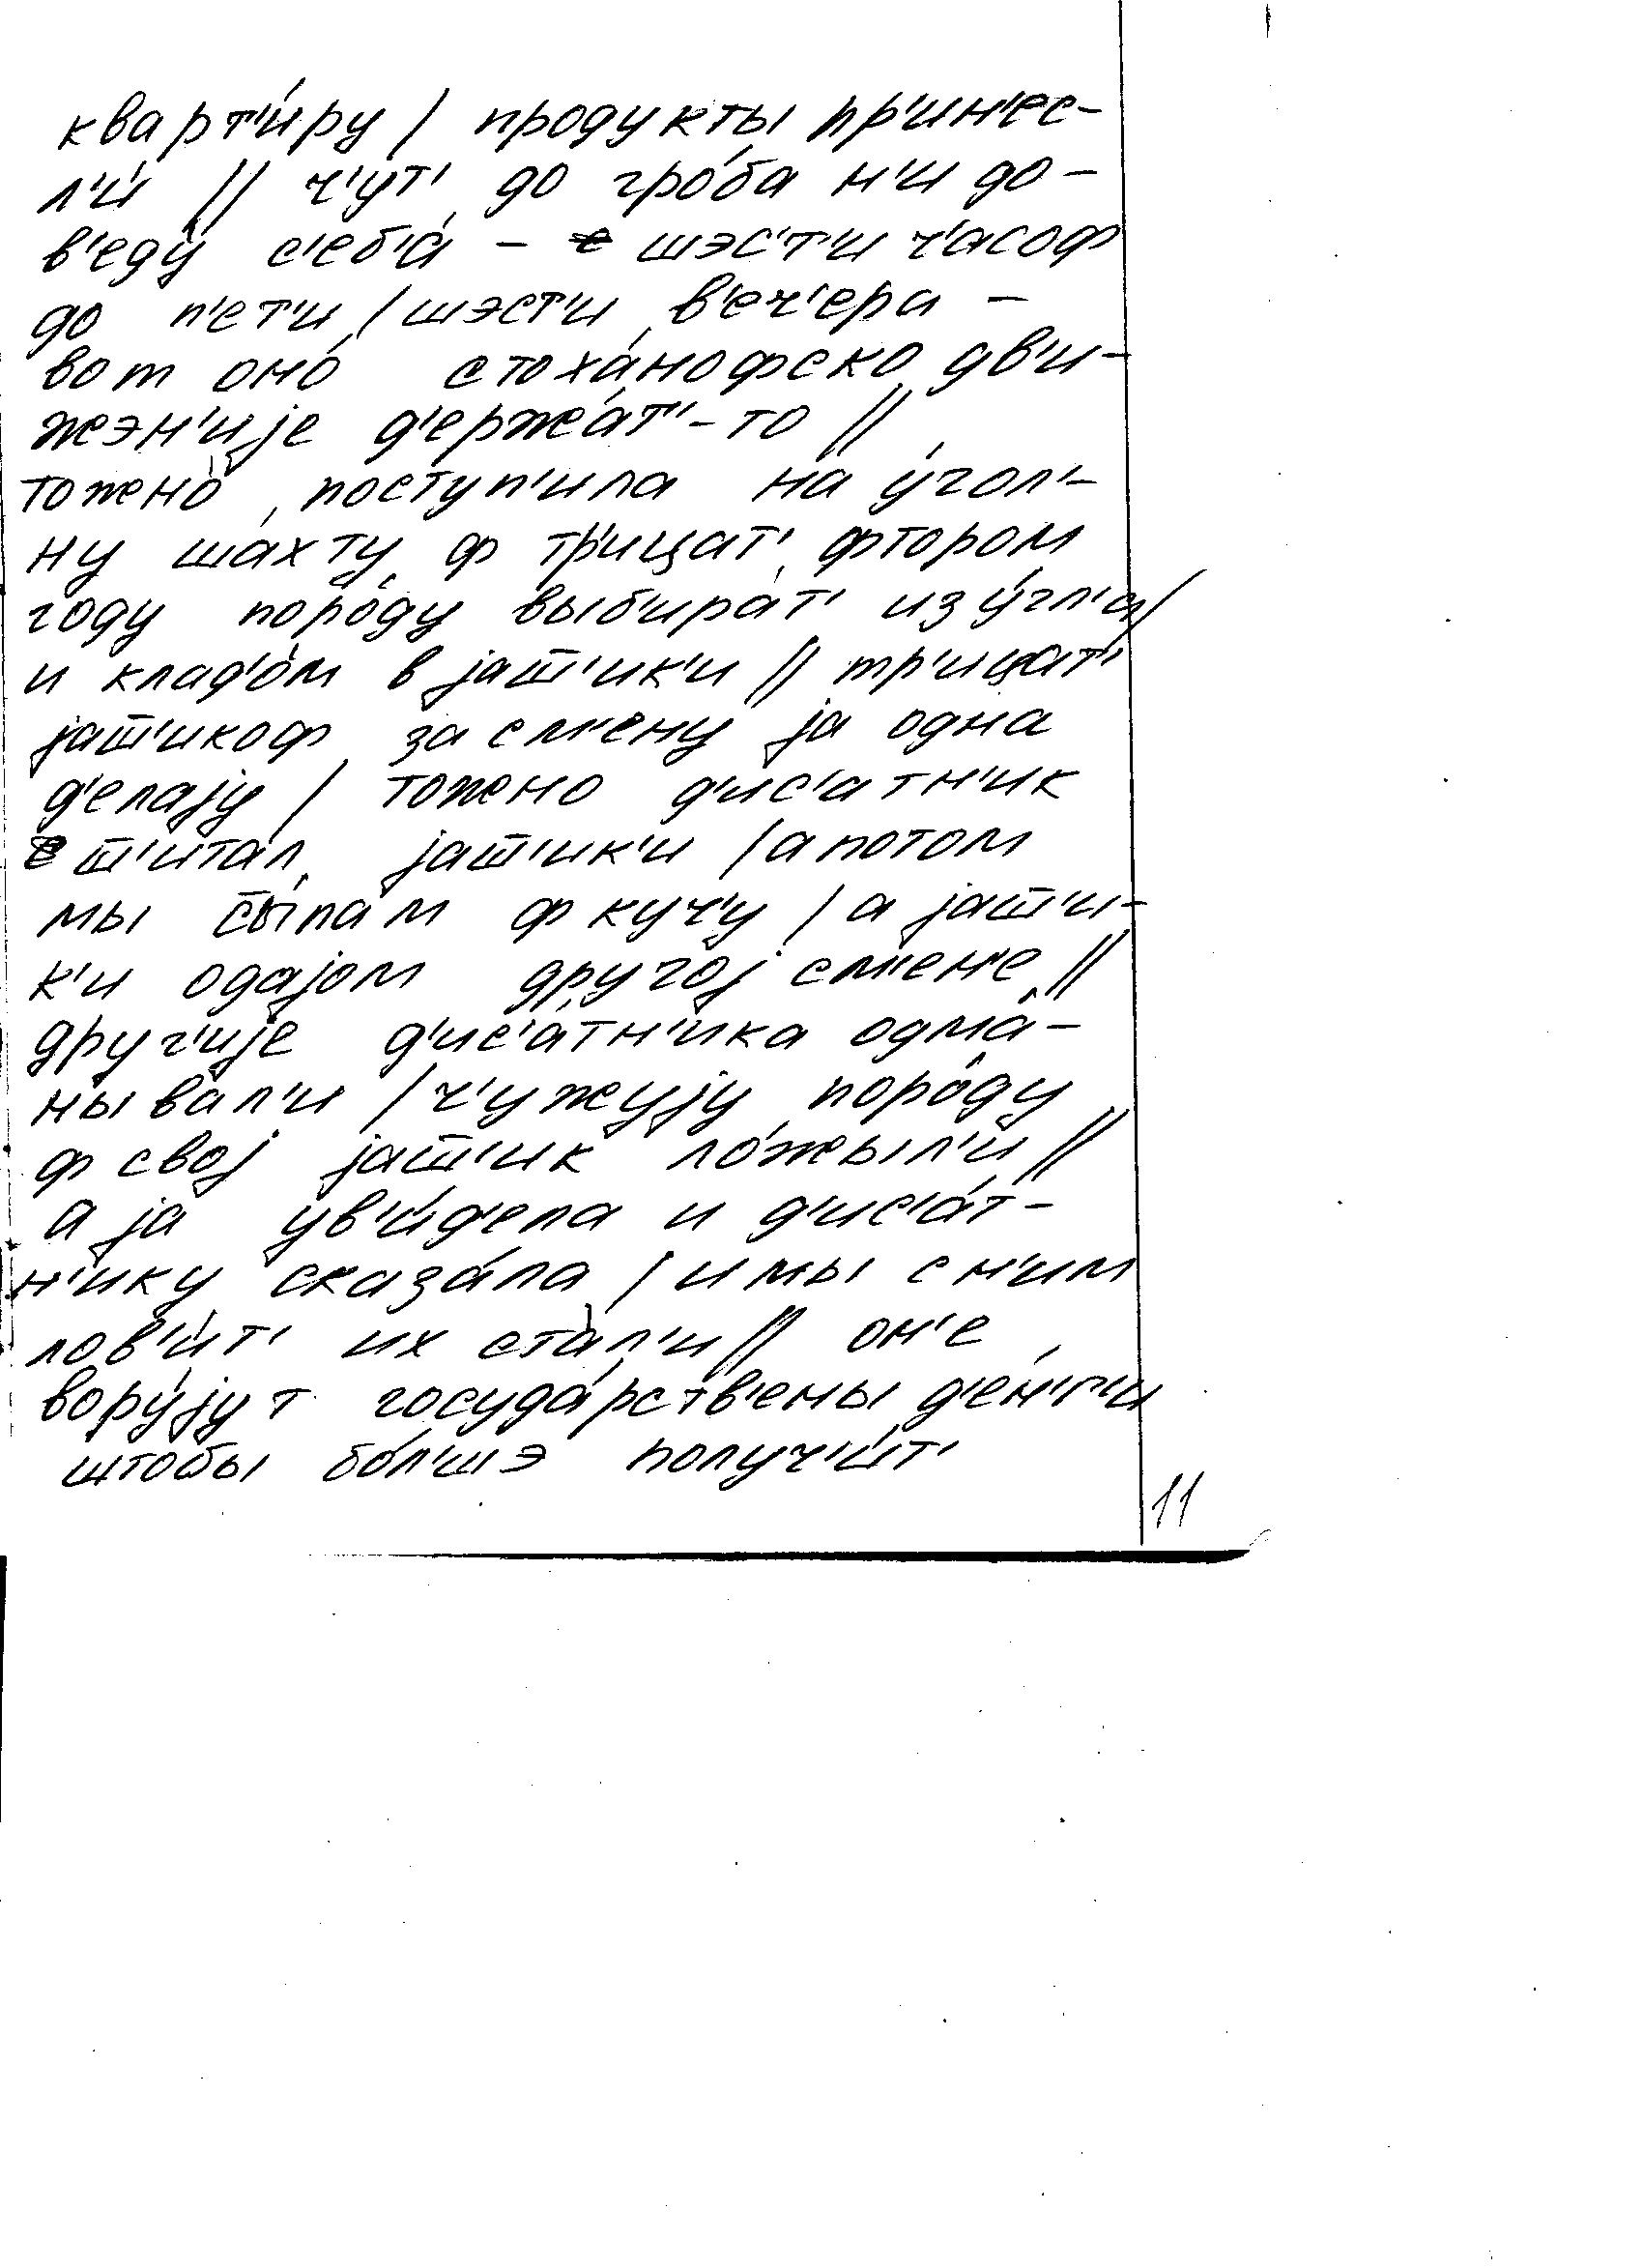 кварт'и́ру / продукты пр'ин'ес-
л'и́ // ч'ут' до гро́ба н'и до-
в'еду́ с'еб'а́ - шэс'т'и ч'асоф
до п'ет'и / шэст'и в'еч'ера -
вот оно́ стоха́нофско дв'и-
жэн'иjе д'ержа́т'-то //
тожено́ поступ'ила на у́гол'-
ну шахту ф тр'ицат' фтором
году поро́ду выб'ира́т' из у́гл'а /
и клад'о́м в jаш̅'ик'и // тр'ицат'
jаш̅'икоф за см'ену jа одна
д'елаjу / тожено д'ис'атн'ик
ш̅'ита́л jаш̅'ик'и / а потом
мы сы́пам ф куч'у / а jаш̅'и-
к'и одаjом другоj см'ен'е //
друг'иjе д'ис'а́тн'ика одма́-
нывал'и / ч'ужуjу поро́ду
ф своj jаш̅'ик ло́жыл'и //
а jа ув'и́д'ела и д'ис'а́т-
н'ику сказа́ла / и мы с н'им
лов'и́т' их ста́л'и // он'е
вору́jут госуда́рств'ены д'ен'г'и
штобы бо́л'шэ получ'и́т'
11